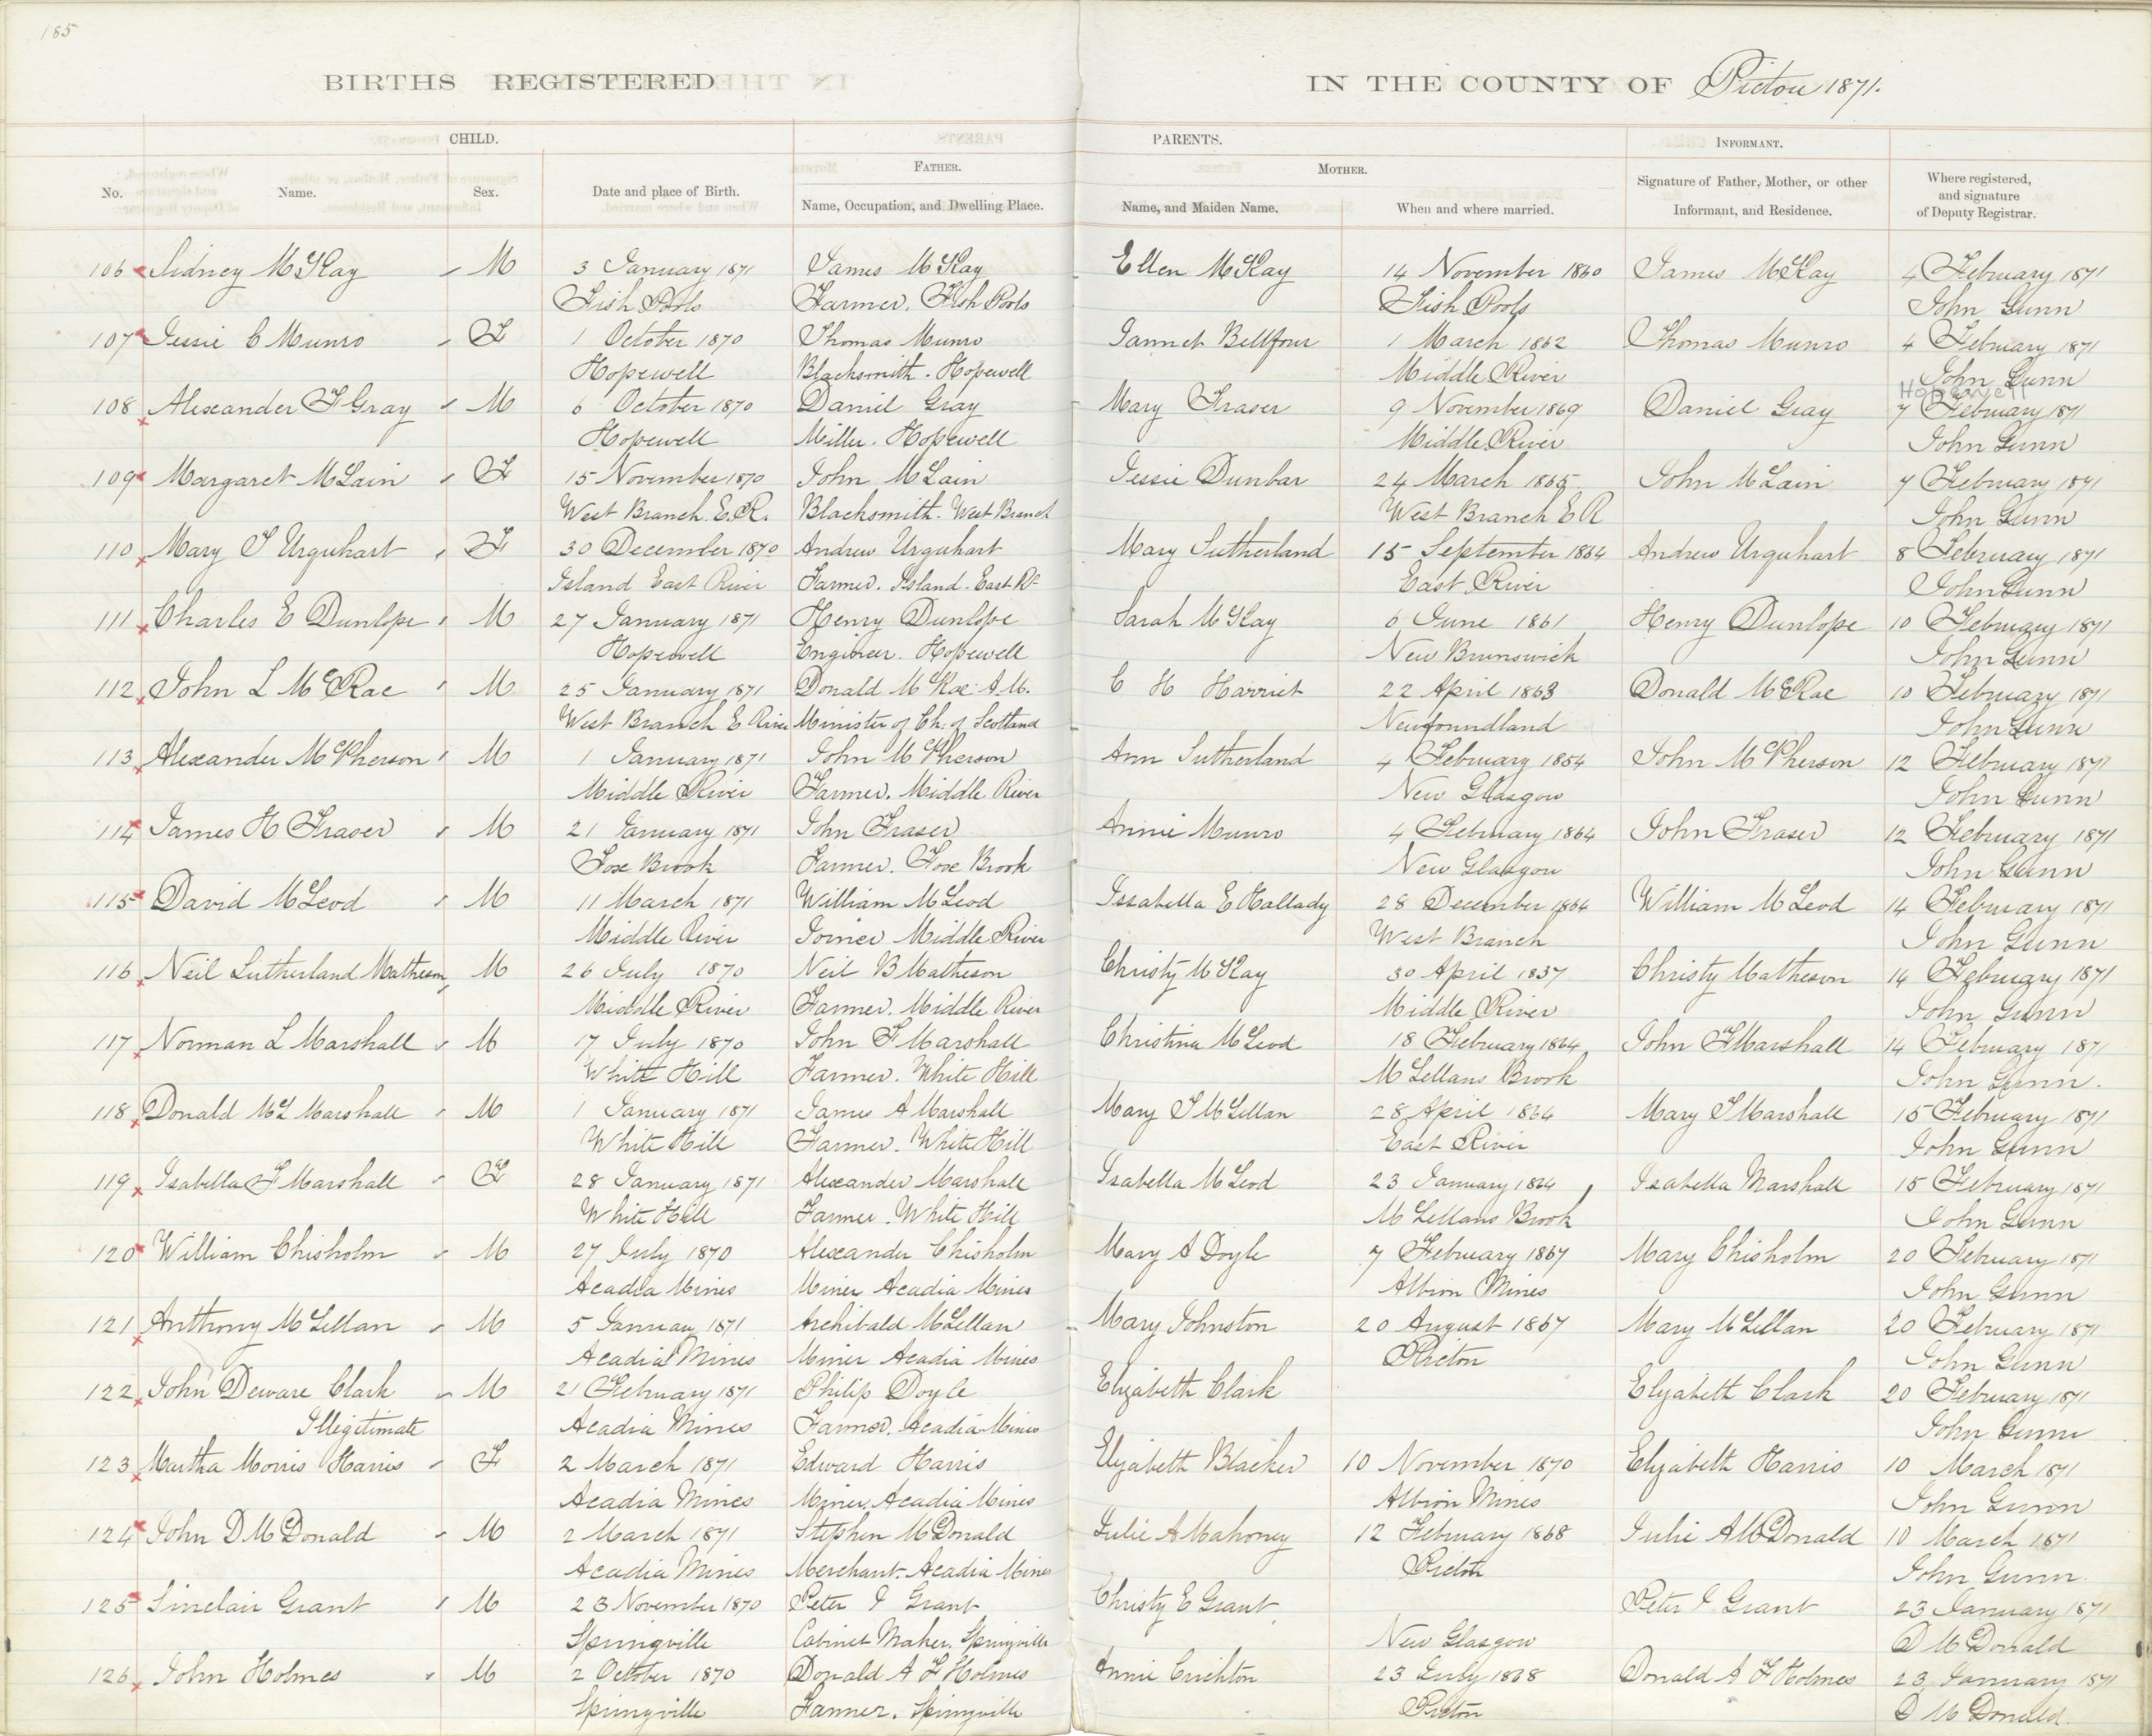 185
BIRTHS REGISTERED IN THE COUNTY OF Pictou 1871.
CHILD. PARENTS. INFORMANT.
FATHER. MOTHER.
No. Name. Sex. Date and place of Birth. Name, Occupation, and Dwelling Place. Name, and Maiden Name. When and where married. Signature of Father, Mother, or other Informant, and Residence. Where registered, and signature of Deputy Registrar.
106 Sidney McKay M 3 January 1871 James McKay Ellen McKay 14 November 1860 James McKay 4 February 1871
Fish Pools Farmer. Fish Pools Fish Pools John Gunn
107 Jessie C Munro F 1 October 1870 Thomas Munro Jannet Bellfour 1 March 1862 Thomas Munro 4 February 1871
Hopewell Blacksmith. Hopewell Middle River John Gunn
Hopewell
108 Alexander F Gray M 6 October 1870 Daniel Gray Mary Fraser 9 November 1869 Daniel Gray 7 February 1871
Hopewell Miller. Hopewell Middle River John Gunn
109 Margaret McLain F 15 November 1870 John McLain Jessie Dunbar 24 March 1865 John McLain 7 February 1871
West Branch. E.R. Blacksmith. West Branch West Branch E R John Gunn
110 Mary J Urquhart F 30 December 1870 Andrew Urquhart Mary Sutherland 15 September 1864 Andrew Urquhart 8 February 1871
Island East River Farmer. Island. East Rr East River John Gunn
111 Charles E Dunlope M 27 January 1871 Henry Dunlope Sarah McKay 6 June 1861 Henry Dunlope 10 February 1871
Hopewell Engineer. Hopewell New Brunswick John Gunn
112 John L McRae M 25 January 1871 Donald McRae A.M. C H Harriet 22 April 1863 Donald McRae 10 February 1871
West Branch E River Minister of Ch: of Scotland Newfoundland John Gunn
113 Alexander McPherson M 1 January 1871 John McPherson Ann Sutherland 4 February 1854 John McPherson 12 February 1871
Middle River Farmer. Middle River New Glasgow John Gunn
114 James H Fraser M 21 January 1871 John Fraser Annie Munro 4 February 1864 John Fraser 12 February 1871
Fox Brook Farmer. Fox Brook New Glasgow John Gunn
115 David McLeod M 11 March 1871 William McLeod Issabella E Hallady 28 December 1864 William McLeod 14 February 1871
Middle River Joiner Middle River West Branch John Gunn
116 Neil Sutherland Matheson M 26 July 1870 Neil B Matheson Christy McKay 30 April 1857 Christy Matheson 14 February 1871
Middle River Farmer. Middle River Middle River John Gunn
117 Norman L Marshall M 17 July 1870 John F Marshall Christina McLeod 18 February 1864 John F Marshall 14 February 1871
White Hill Farmer. White Hill McLellans Brook John Gunn.
118 Donald McL Marshall M 1 January 1871 James A Marshall Mary J McLellan 28 April 1864 Mary J Marshall 15 February 1871
White Hill Farmer. White Hill East River John Gunn
119 Isabella F Marshall F 28 January 1871 Alexander Marshall Isabella McLeod 23 January 1864 Isabella Marshall 15 February 1871
White Hill Farmer. White Hill McLellans Brook John Gunn
120 William Chisholm M 27 July 1870 Alexander Chisholm Mary A Doyle 7 February 1867 Mary Chisholm 20 February 1871
Acadia Mines Miner Acadia Mines Albion Mines John Gunn
121 Anthony McLellan M 5 January 1871 Archibald McLellan Mary Johnston 20 August 1867 Mary McLellan 20 February 1871
Acadia Mines Miner Acadia Mines Picton John Gunn
122 John Deware Clark M 21 February 1871 Philip Doyle Elizabeth Clark Elizabeth Clark 20 February 1871
Illegitimate Acadia Mines Farmer. Acadia Mines John Gunn
123 Martha Morris Harris F 2 March 1871 Edward Harris Elizabeth Blacker 10 November 1870 Elizabeth Harris 10 March 1871
Acadia Mines Miner. Acadia Mines Albion Mines John Gunn
124 John D McDonald M 2 March 1871 Stephen McDonald Julie A Mahoney 12 February 1868 Julie A McDonald 10 March 1871
Acadia Mines Merchant. Acadia Mines Picton John Gunn.
125 Sinclair Grant M 23 November 1870 Peter J Grant Christy E Grant Peter J Grant 23 January 1871
Springville Cabinet Maker. Springville New Glasgow D McDonald
126 John Holmes M 2 October 1870 Donald A F Holmes Annie Crichton 23 July 1868 Donald A F Holmes 23 January 1871
Springville Farmer. Springville Picton D McDonald.